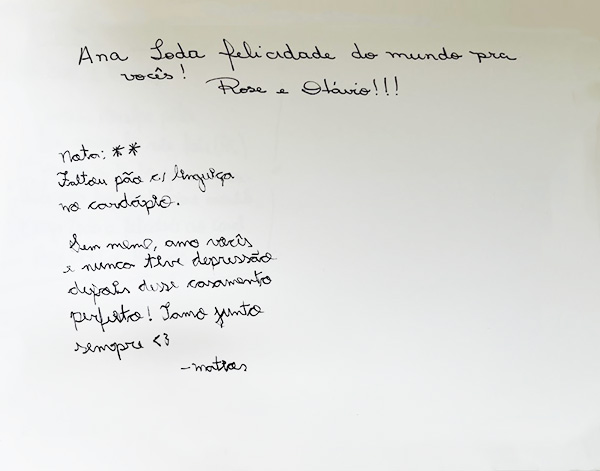 Ana Toda felicidade do mundo pra
vocês!
Rose e Otávio!!!
Nota: **
Faltou pão c/ linguiça
no cardápio.
Sem meme, amo vocês
e nunca tive depressão
depois desse casamento
perfeito! Tamo junto
sempre <3